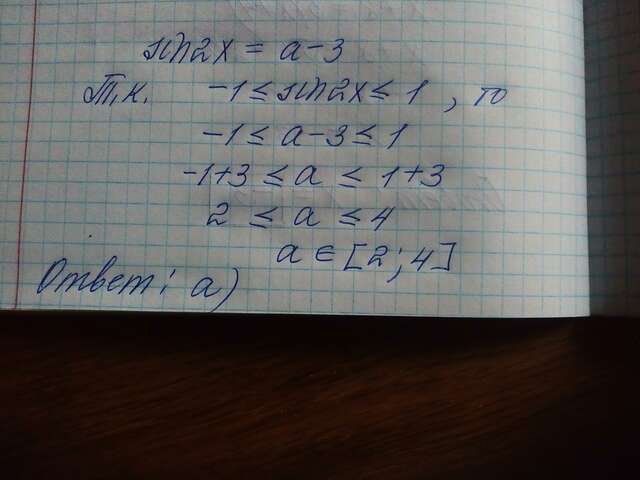 sin2x = a-3
Т.к. -1 ≤ sin2x ≤ 1, то
-1 ≤ a-3 ≤ 1
-1+3 ≤ a ≤ 1+3
2 ≤ a ≤ 4
a ∈ [2; 4]
Ответ: а)